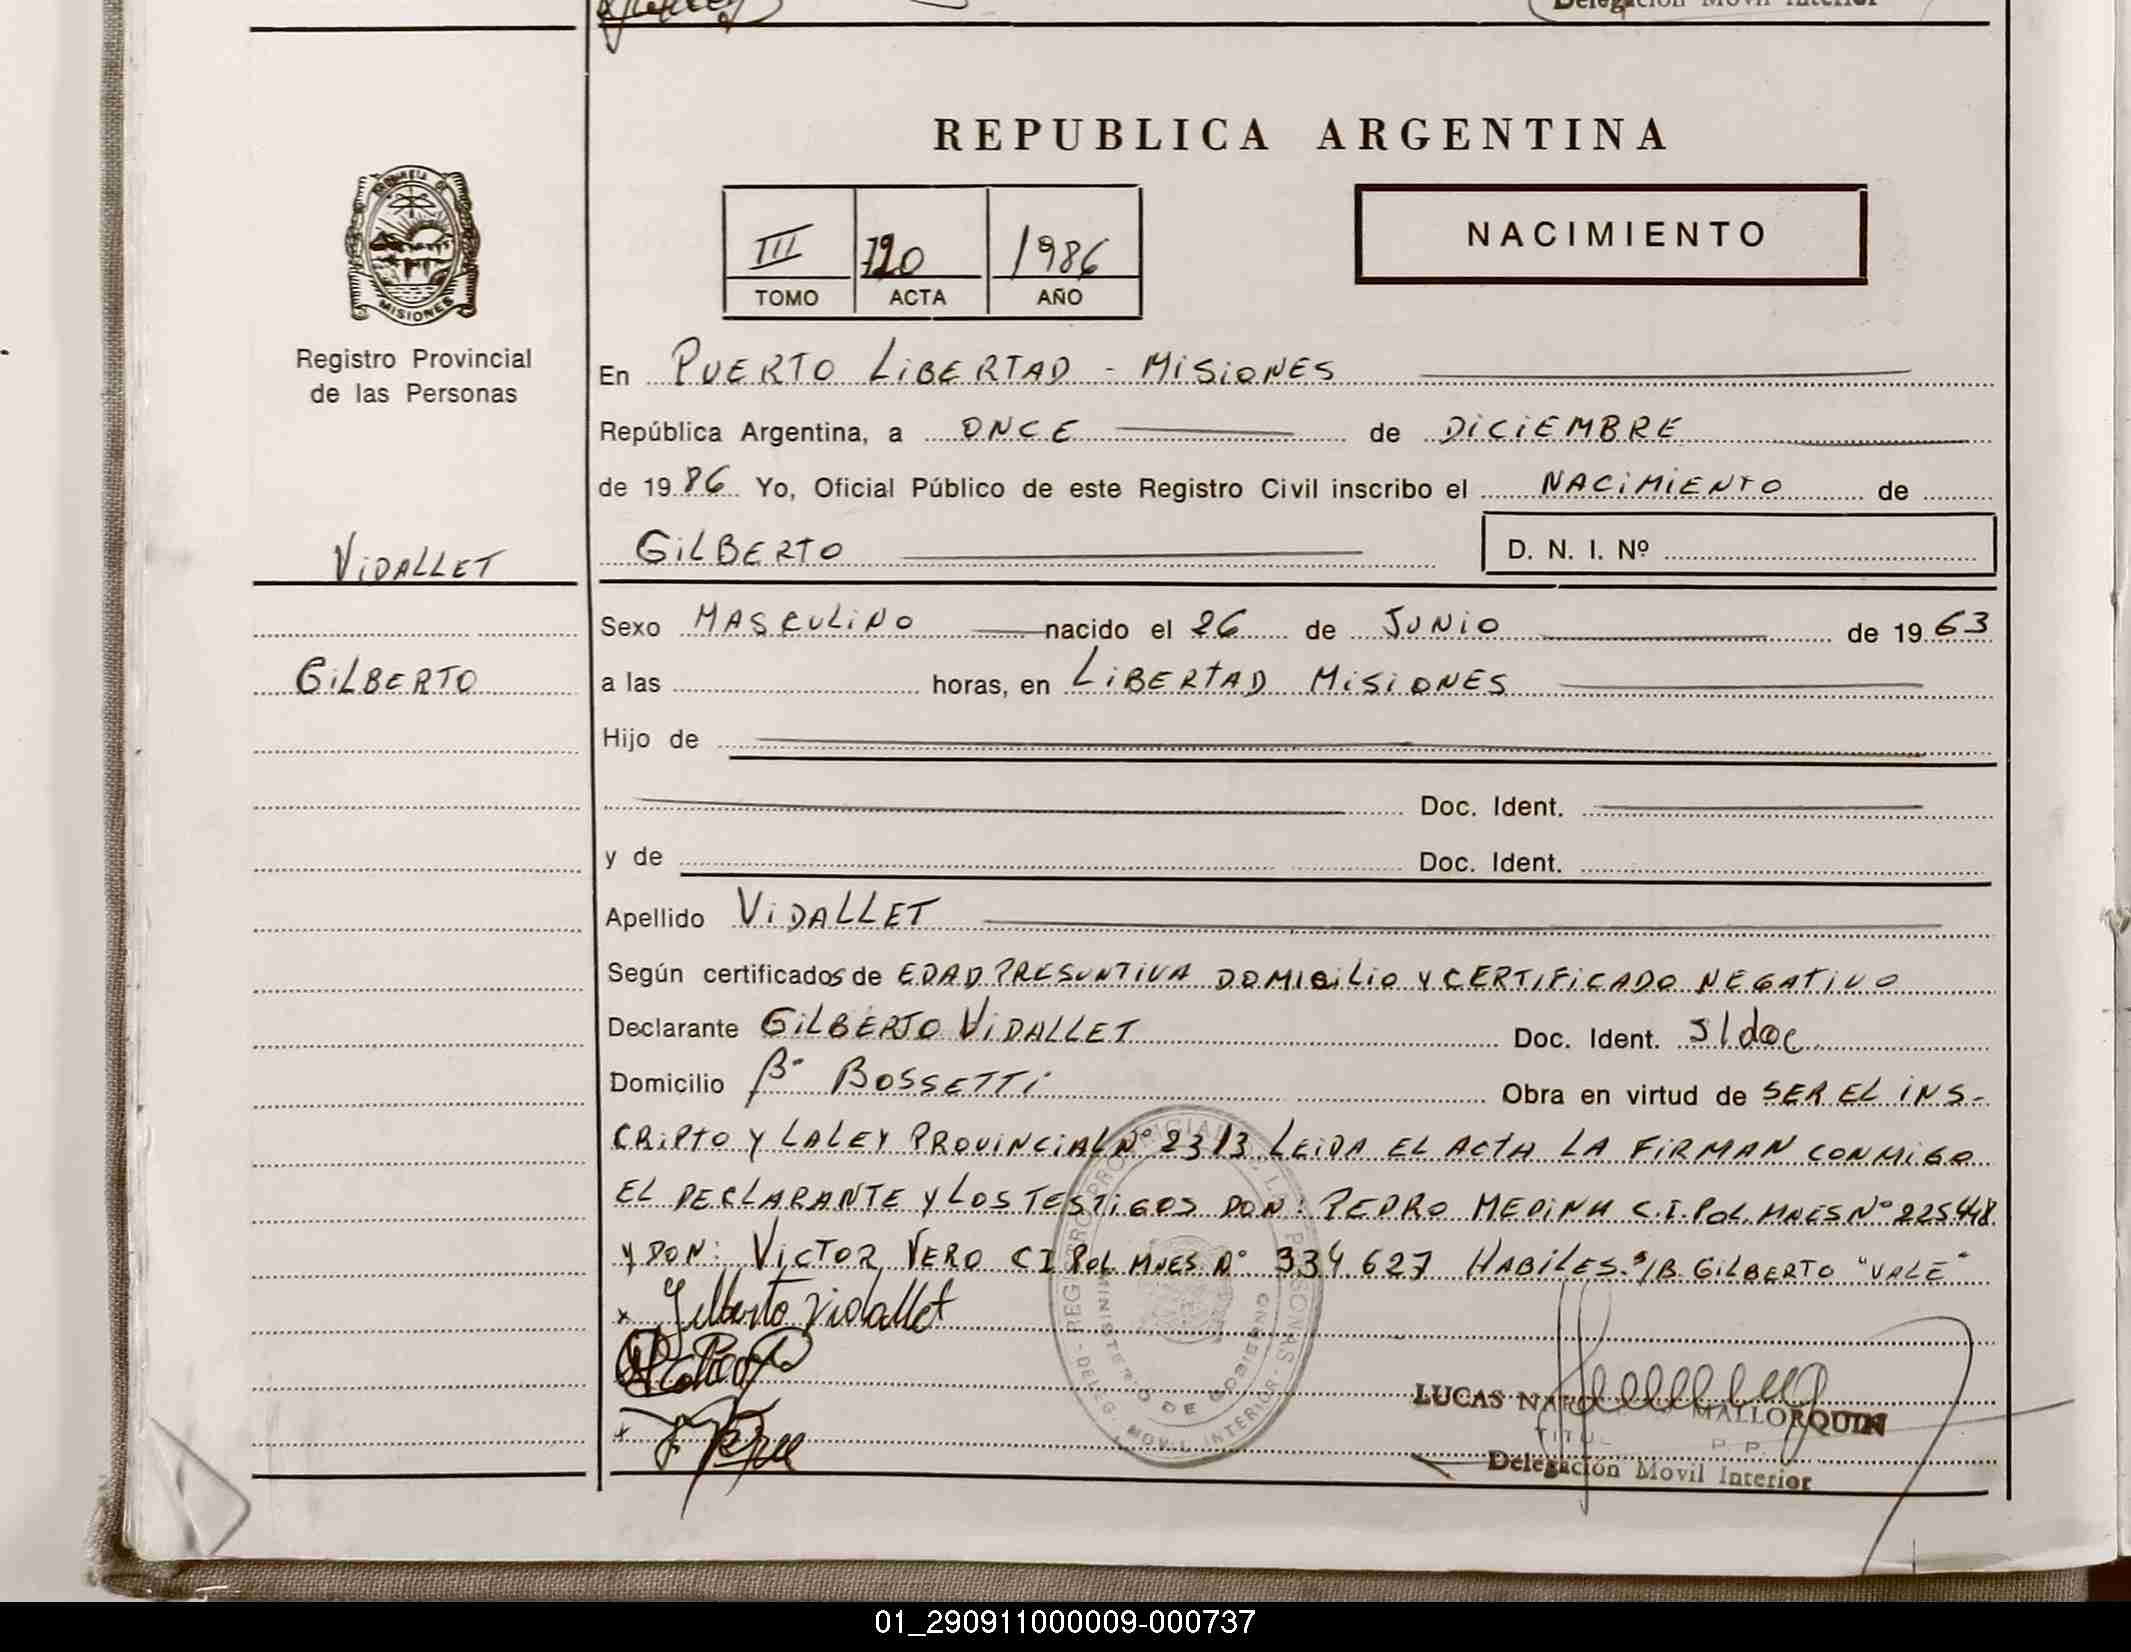 Delegación Movil Interior
REPUBLICA ARGENTINA
PROVINCIA DE
MISIONES
Registro Provincial
de las Personas
III 120 1986
TOMO ACTA AÑO
NACIMIENTO
En PUERTO LIBERTAD - MISIONES
República Argentina, a ONCE de DICIEMBRE
de 1986 Yo, Oficial Público de este Registro Civil inscribo el NACIMIENTO de
VIDALLET
GILBERTO
D. N. I. Nº
Sexo MASCULINO nacido el 26 de JUNIO de 1963
GILBERTO
a las horas, en LIBERTAD MISIONES
Hijo de
Doc. Ident.
y de Doc. Ident.
Apellido VIDALLET
Según certificados de EDAD PRESUNTIVA DOMICILIO Y CERTIFICADO NEGATIVO
Declarante GILBERTO VIDALLET Doc. Ident. S/doc
Domicilio Bº BOSSETTI Obra en virtud de SER EL INS-
CRIPTO Y LA LEY PROVINCIAL Nº 2313 LEIDA EL ACTA LA FIRMAN CONMIGO
EL DECLARANTE Y LOS TESTIGOS DON: PEDRO MEDINA C.I. POL. MNES Nº 225448
Y DON: VICTOR VERO CI POL MNES Nº 334627 HABILES. S/B GILBERTO "VALE"
x Gilberto Vidallet
x
REGISTRO PROVINCIAL DE LAS PERSONAS
MINISTERIO DE GOBIERNO
- DELEG. MOVIL INTERIOR -
LUCAS MALLORQUIN
Delegación Movil Interior
01_290911000009-000737